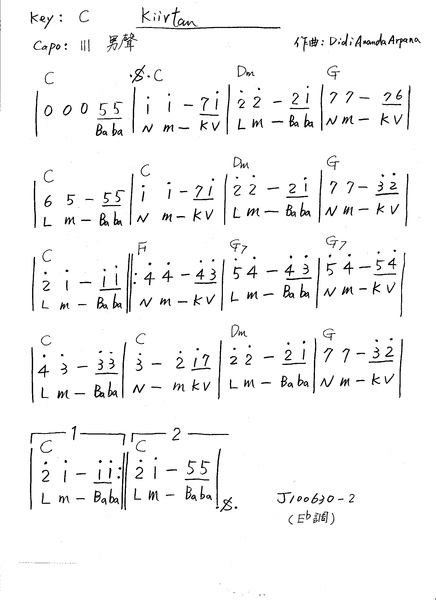 Key: C Kiirtan
Capo: III 男聲 作曲: Didi Ananda Arpana
C .S. C Dm G
| 0 0 0 55 | i i - 7i | 2̇ 2̇ - 2̇i | 7 7 - 76 |
Baba N m - KV L m - Baba N m - KV
C C Dm G
| 6 5 - 55 | i i - 7i | 2̇ 2̇ - 2̇i | 7 7 - 3̇2̇ |
L m - Baba N m - KV L m - Baba N m - KV
C F G7 G7
| 2̇ i - ii ||: 4̇ 4̇ - 4̇3̇ | 5̇ 4̇ - 4̇3̇ | 5̇ 4̇ - 5̇4̇ |
L m - Baba N m - KV L m - Baba N m - KV
C C Dm G
| 4̇ 3̇ - 3̇3̇ | 3̇ - 2̇ i7 | 2̇ 2̇ - 2̇i | 7 7 - 3̇2̇ |
L m - Baba N - m KV L m - Baba N m - KV
1 2
C C
| 2̇ i - ii :|| 2̇ i - 55 |
L m - Baba L m - Baba .S.
J100630-2
(E♭調)